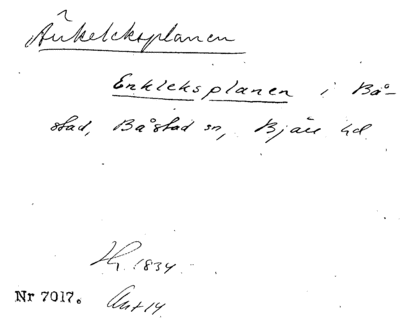 Änkeleksplanen
Enkleksplanen i Bå-
stad, Båstad sn, Bjäre hd
1834
Nr 7017.